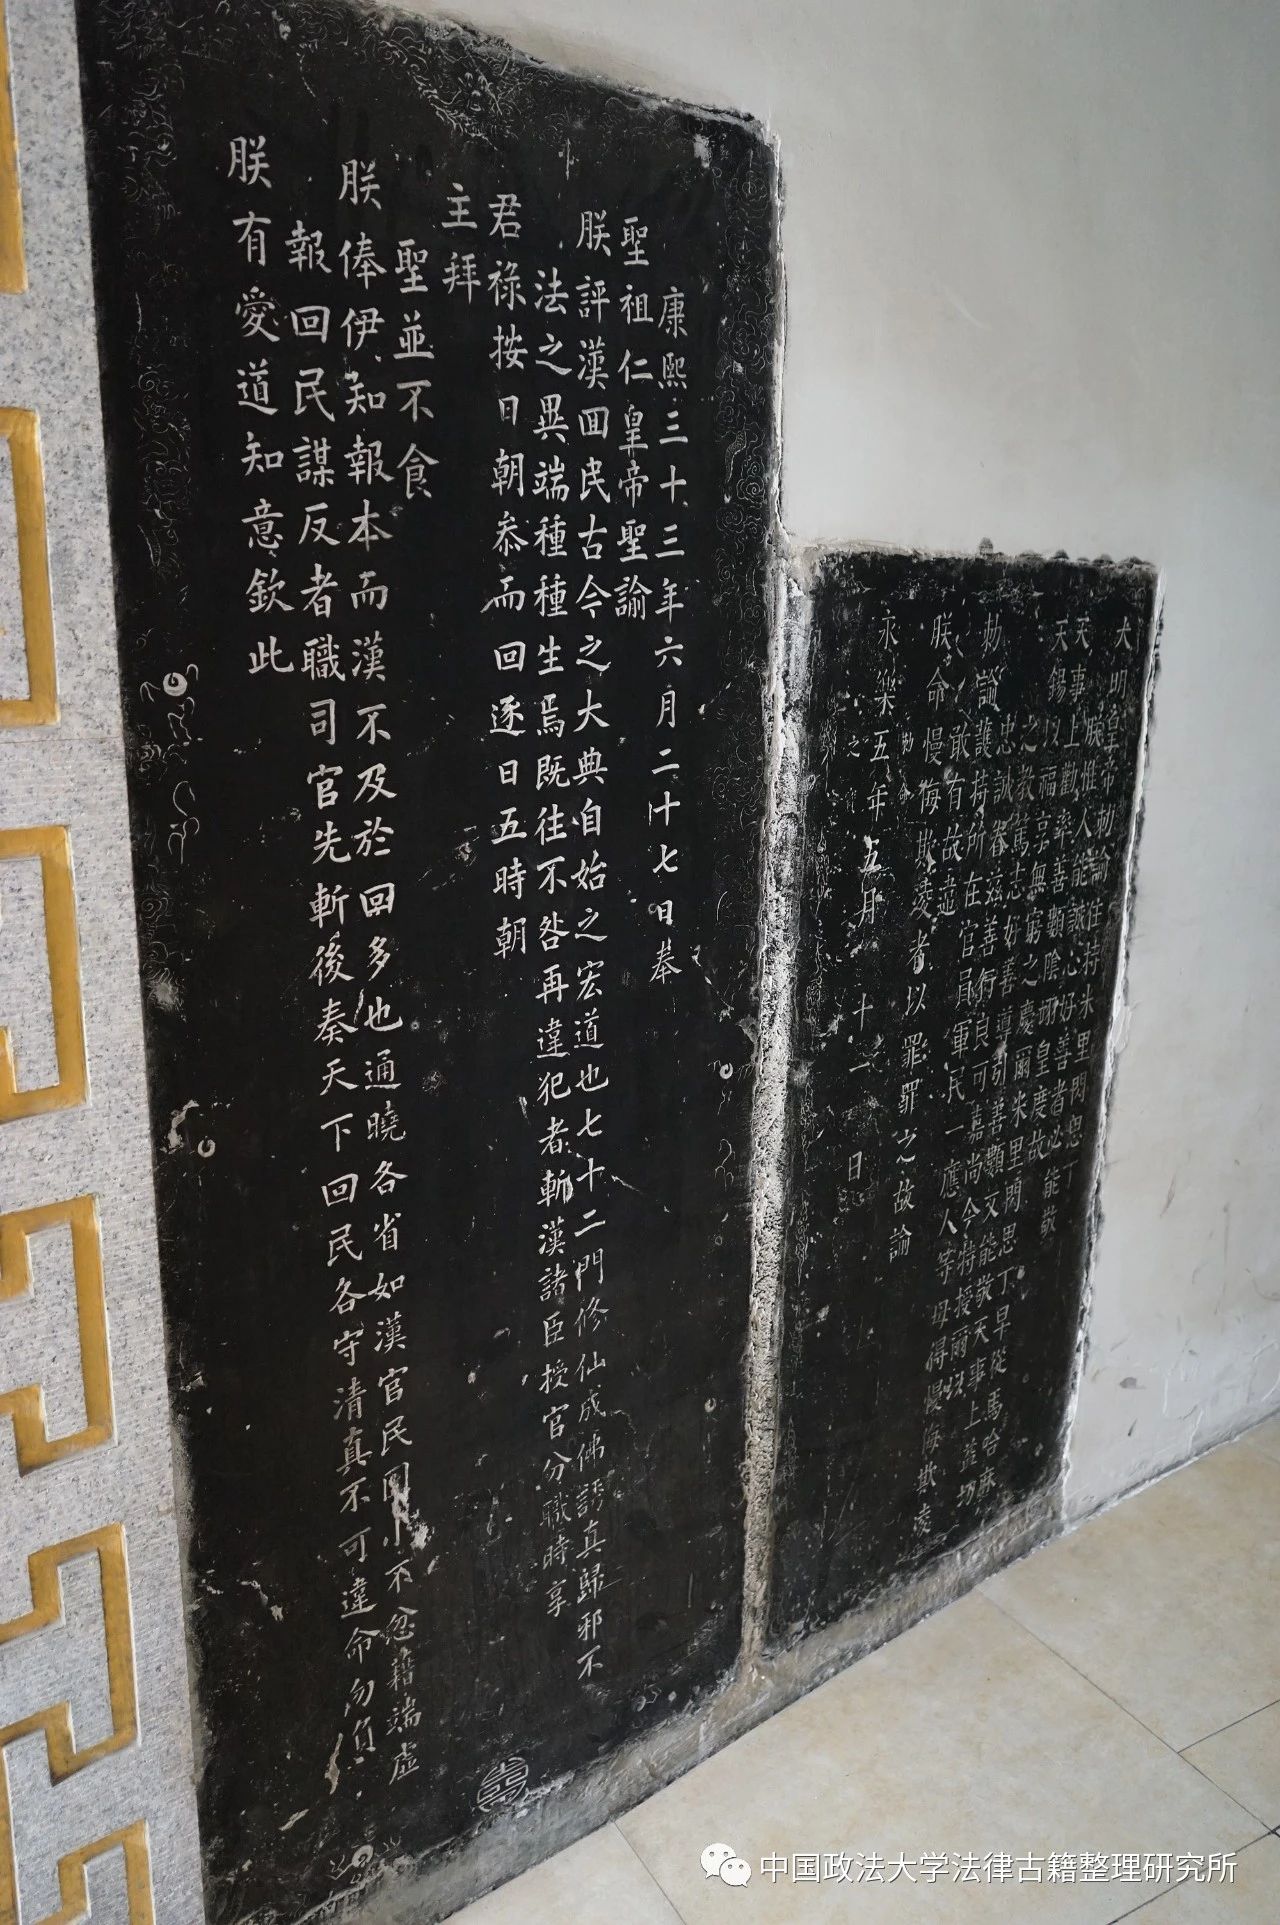 大明皇帝勅諭往持米里閔思丁
朕惟人能誠心好善者必能敬
天事上勸率善類陰翊皇度故
天錫以福享無窮之慶爾米里閔思丁早從馬哈麻
之教篤志好善導引善類又能敬天事上益
忠誠眷茲善行良可嘉尚今特授爾以
勅諭護持所在官員軍民一應人等毋得慢侮欺凌
敢有故違
朕命慢侮欺凌者以罪罪之故諭
永樂五年五月十一日
康熙三十三年六月二十七日奉
聖祖仁皇帝聖諭
朕評漢回民古今之大典自始之宏道也七十二門修仙成佛誘真歸邪不
法之異端種種生焉既往不咎再違犯者斬漢諸臣授官分職時享
君祿按日朝叅而回逐日五時朝
主拜
聖並不食
朕俸伊知報本而漢不及於回多也通曉各省如漢官民因小不忿藉端虛
報回民謀反者職司官先斬後奏天下回民各守清真不可違命勿負
朕有愛道知意欽此
中国政法大学法律古籍整理研究所